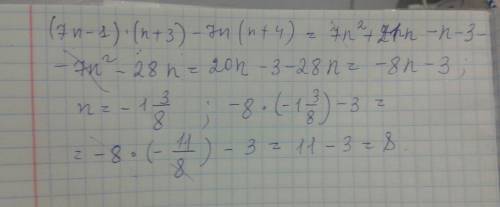 (7n-1)·(n+3)-7n(n+4) = 7n²+21n -n-3-
-7n²-28n = 20n -3-28n = -8n-3 ;
n = -1 3/8 ; -8·(-1 3/8)-3 =
= -8·(-11/8) - 3 = 11-3 = 8.